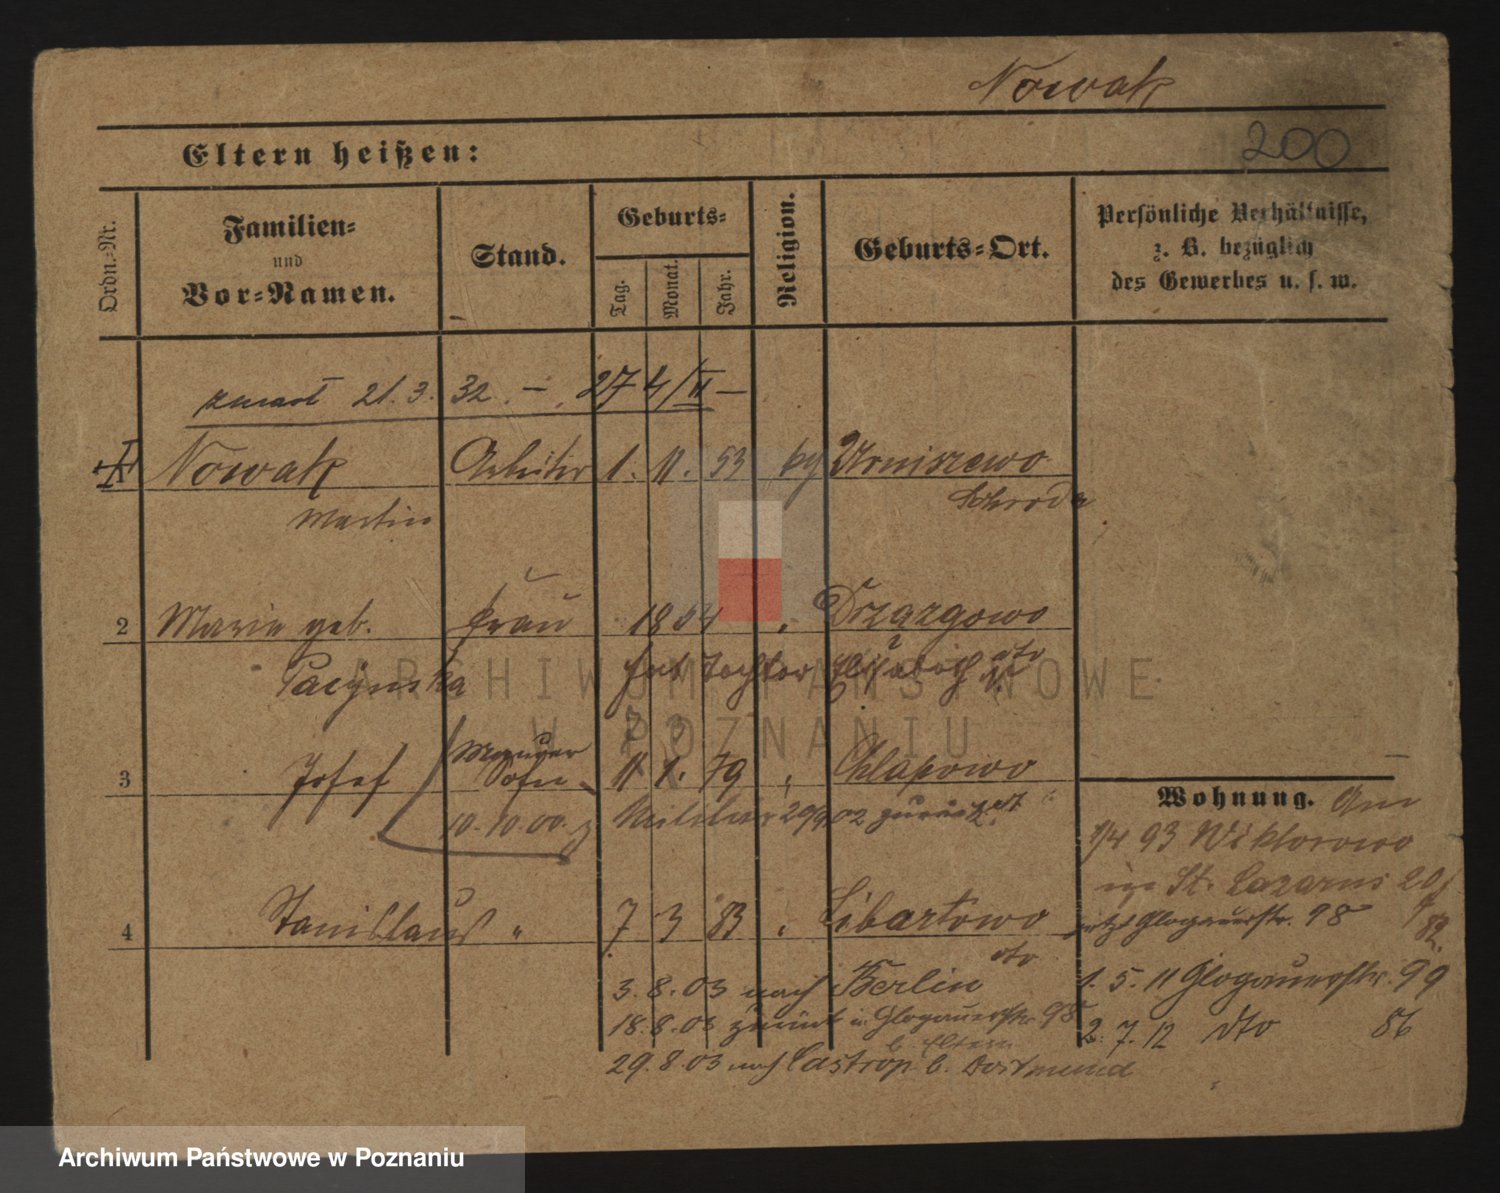 Nowak
200
Eltern heißen:
Ordn.-Nr.
Familien-
und
Vor-Namen.
Stand.
Geburts-
Tag.
Monat.
Jahr.
Religion.
Geburts-Ort.
Persönliche Verhältnisse,
z. B. bezüglich
des Gewerbes u. s. w.
zmarł 21. 3. 32. – 27 4/II –
Nowak Arbeiter 1. 11. 53 Urniszewo
Martin Schroda
2 Marie geb. Frau 1854 " Drzązgowo
Pacynska hat Tochter dto
7 3
3 Josef Maurer 11 1. 79 " Chlapowo
Sohn
10. 10. 00. Militair 29/9 02 zurück
4 Stanislaus " 7 3 83 " Libartowo
dto
3. 8. 03 nach Berlin
18. 8. 03 zurück in Glogauerstr. 98
b. Eltern
29. 8. 03 nach Castrop b. Dortmund
Wohnung. Am
1/4 93 Wiktorowo
St. Lazarus 20/
jetzt Glogauerstr. 98 82.
1. 5. 11 Glogauerstr. 99
2. 7. 12 dto 86
ARCHIWUM PAŃSTWOWE
W POZNANIU
Archiwum Państwowe w Poznaniu